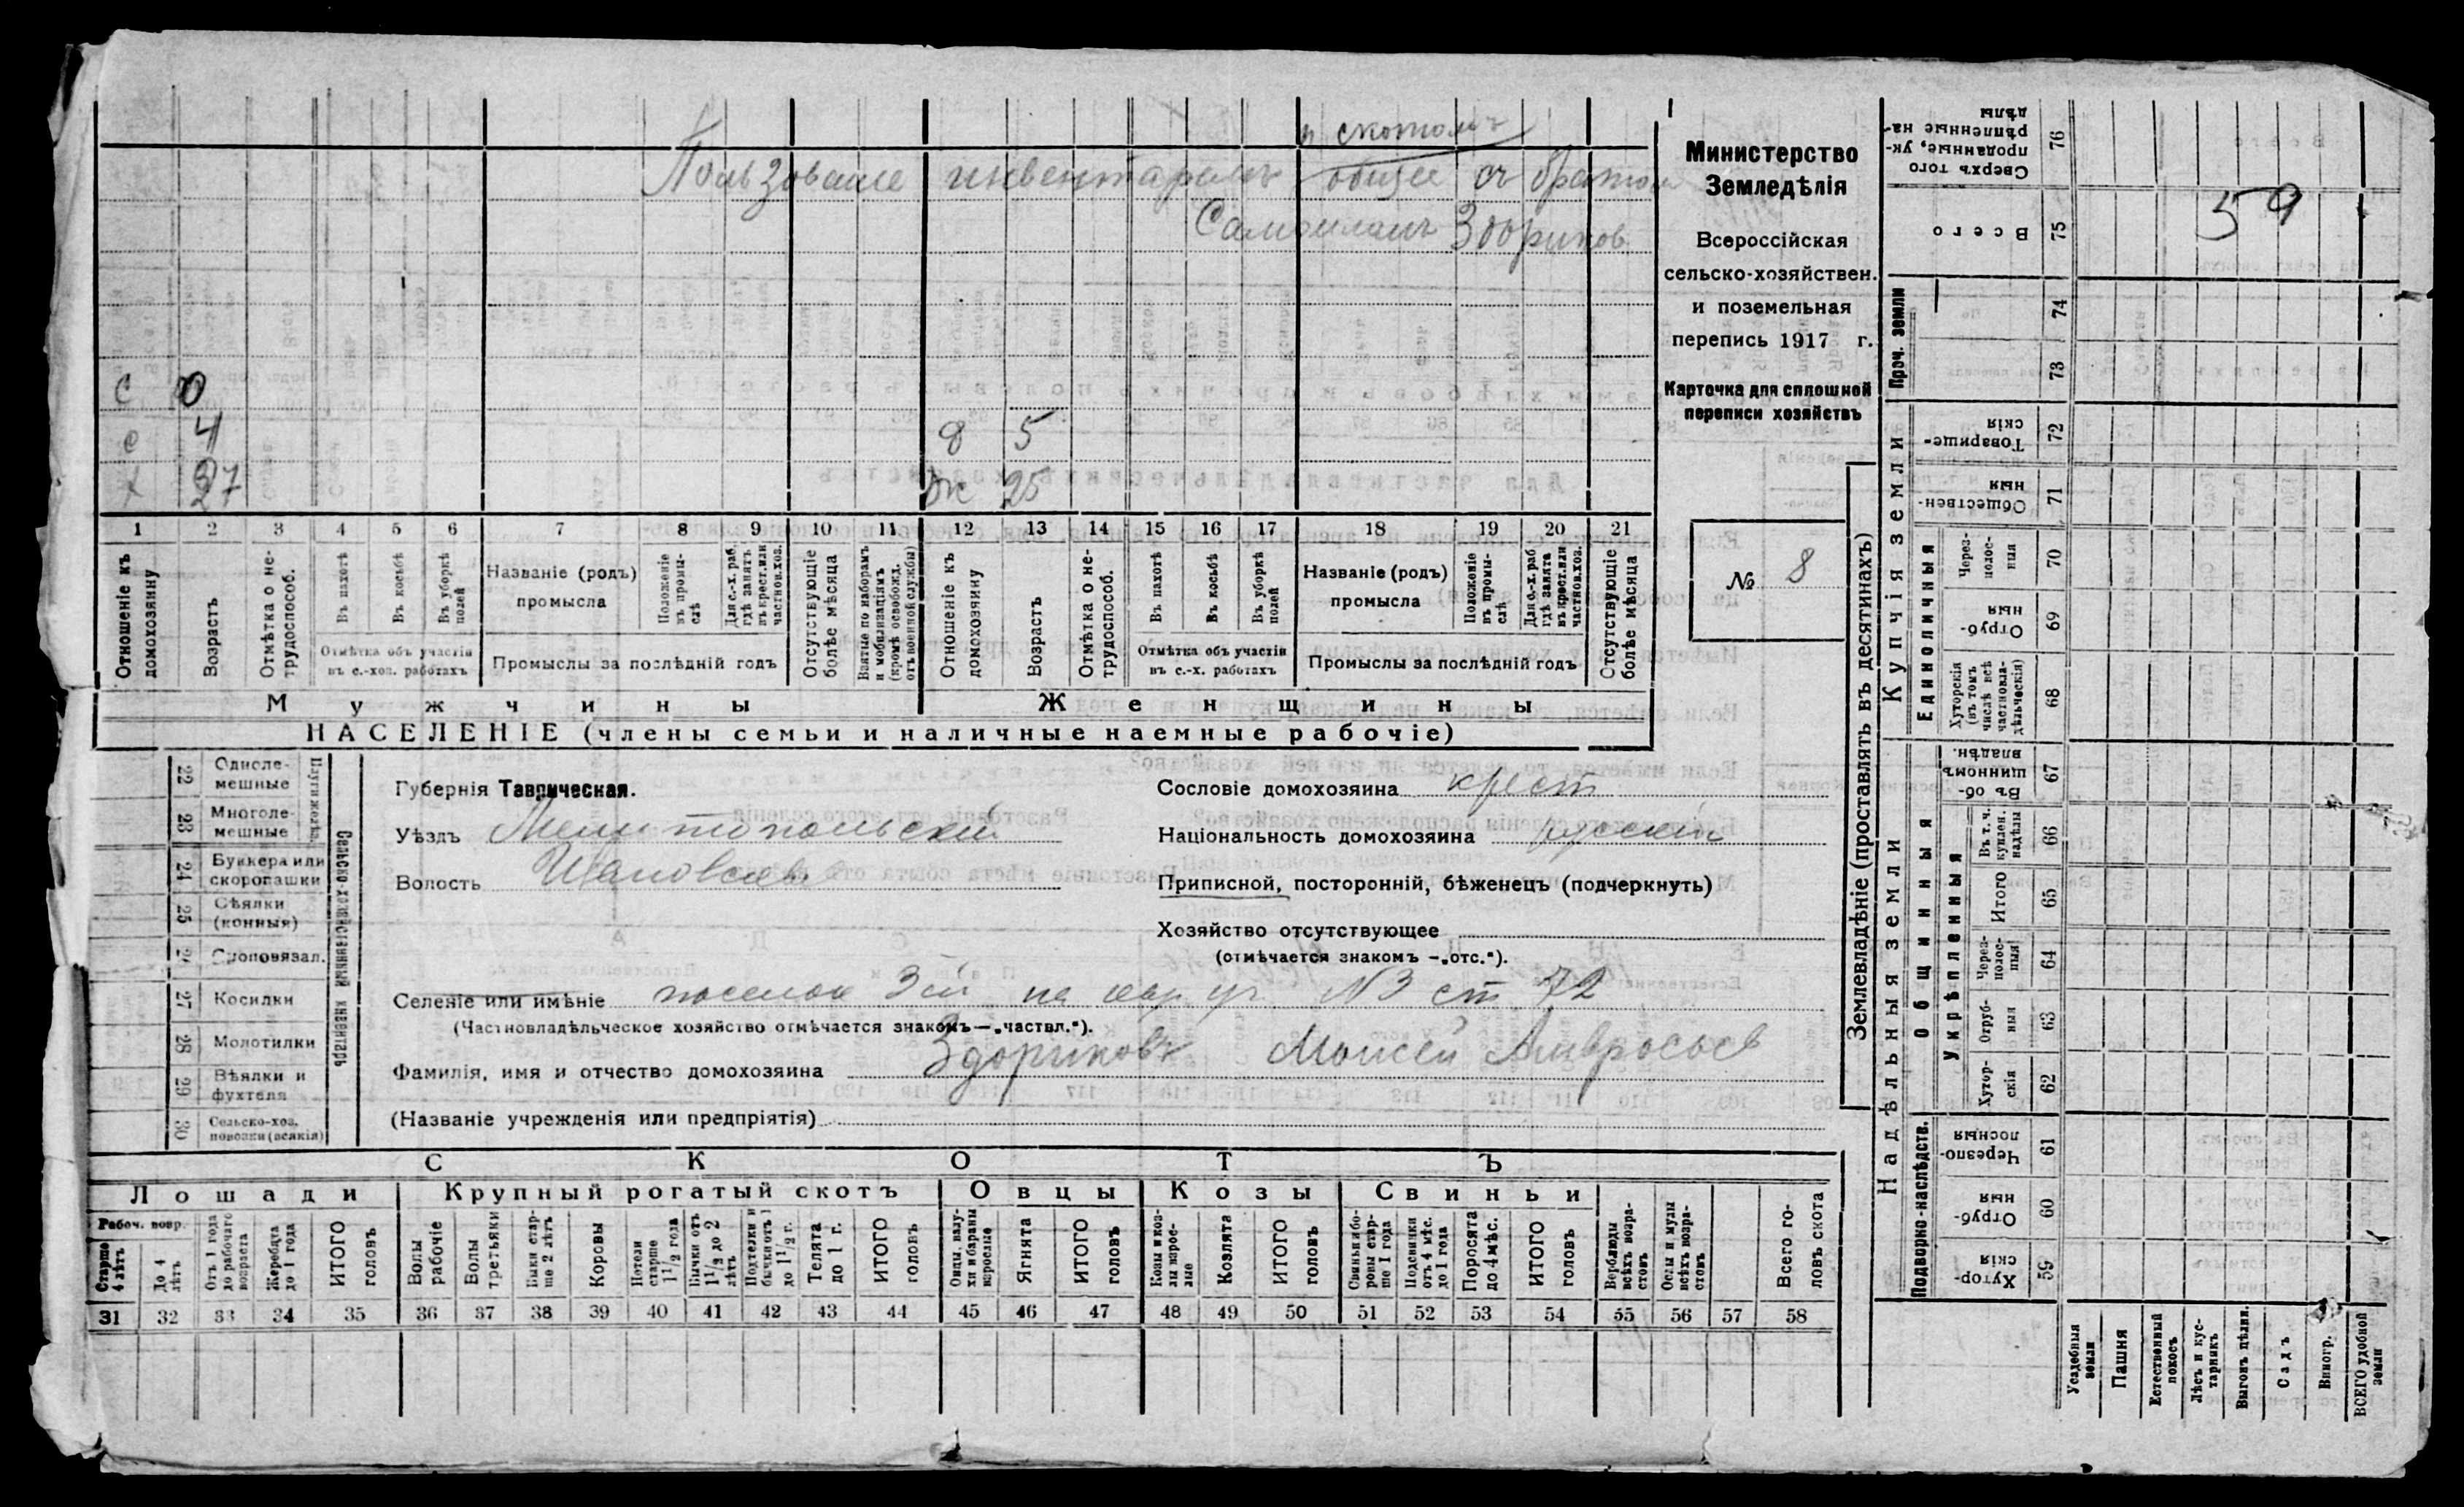 и скотомъ
Пользование инвентаремъ общее съ братом
Самоиломъ Здориков.
с 0
с 4
8 5
х 37
ж 25
1 2 3 4 5 6 7 8 9 10 11 12 13 14 15 16 17 18 19 20 21
Отношеніе къ домохозяину
Возрастъ
Отмѣтка о не-трудоспособ.
Въ пахотѣ
Въ косьбѣ
Въ уборкѣ полей
Отмѣтка объ участіи въ с.-хоз. работахъ
Названіе (родъ) промысла
Положеніе въ промы-слѣ
Для с.-х. раб. гдѣ занятъ въ крест. или частнов. хоз.
Промыслы за послѣдній годъ
Отсутствующіе болѣе мѣсяца
Взятые по наборамъ и мобилизаціямъ (кромѣ освобожд. отъ военной службы)
Отношеніе къ домохозяину
Возрастъ
Отмѣтка о не-трудоспособ.
Въ пахотѣ
Въ косьбѣ
Въ уборкѣ полей
Отмѣтка объ участіи въ с.-х. работахъ
Названіе (родъ) промысла
Положеніе въ промы-слѣ
Для с.-х. раб. гдѣ занята въ крест. или частнов. хоз.
Промыслы за послѣдній годъ
Отсутствующіе болѣе мѣсяца
Мужчины
Женщины
НАСЕЛЕНІЕ (члены семьи и наличные наемные рабочіе)
Министерство
Земледѣлія
Всероссійская
сельско-хозяйствен.
и поземельная
перепись 1917 г.
Карточка для сплошной
переписи хозяйствъ
№ 8
22 Одноле-мешные
23 Многоле-мешные
24 Буккера или скоропашки
25 Сѣялки (конныя)
26 Сноповязал.
27 Косилки
28 Молотилки
29 Вѣялки и фухтеля
30 Сельско-хоз. повозки (всякія)
Сельско-хозяйственный инвентарь
Губернія Таврическая.
Уѣздъ Мелитопольскій
Волость
Сословіе домохозяина крест
Національность домохозяина русскій
Приписной, посторонній, бѣженецъ (подчеркнуть)
Хозяйство отсутствующее
(отмѣчается знакомъ —„отс.“).
Селеніе или имѣніе поселок 3ій на уч № 3 ст 72
(Частновладѣльческое хозяйство отмѣчается знакомъ—„частвл.“).
Фамилія, имя и отчество домохозяина Здориковъ Моисей Амвросьев
(Названіе учрежденія или предпріятія)
СКОТЪ
Лошади
Крупный рогатый скотъ
Овцы
Козы
Свиньи
Рабоч. возр.
Старше 4 лѣтъ
До 4 лѣтъ
Отъ 1 года до рабочаго возраста
Жеребята до 1 года
ИТОГО головъ
Волы рабочіе
Волы третьяки
Быки стар-ше 2 лѣтъ
Коровы
Нетели старше 1 1/2 года
Бычки отъ 1 1/2 до 2 лѣтъ
Подтелки и бычки отъ 1 до 1 1/2 г.
Телята до 1 г.
ИТОГО головъ
Овцы, валу-хи и бараны взрослые
Ягнята
ИТОГО головъ
Козы и коз-лы взрос-лые
Козлята
ИТОГО головъ
Свиньи и бо-ровы стар-ше 1 года
Подсвинки отъ 4 мѣс. до 1 года
Поросята до 4 мѣс.
ИТОГО головъ
Верблюды всѣхъ возра-стовъ
Ослы и мулы всѣхъ возра-стовъ
Всего го-ловъ скота
31 32 33 34 35 36 37 38 39 40 41 42 43 44 45 46 47 48 49 50 51 52 53 54 55 56 57 58
Землевладѣніе (проставлять въ десятинахъ)
Надѣльныя земли
Купчія земли
Проч. земли
Подворно-наслѣдств.
Общинныя
Укрѣпленныя
Единоличныя
Сверхъ того проданные, ук-рѣпленные на-дѣлы 76
Всего 75
59
74
73
Товарище-скія 72
Обществен-ныя 71
Через-полос-ныя 70
Отруб-ныя 69
Хуторскія (въ томъ числѣ всѣ частновла-дѣльческія) 68
Въ об-щинномъ владѣн. 67
Въ т. ч. куплен. надѣлы 66
Итого 65
Через-полос-ныя 64
Отруб-ныя 63
Хутор-скія 62
Черезпо-лосныя 61
Отруб-ныя 60
Хутор-скія 59
Усадебныя земли
Пашня
Естественный покосъ
Лѣсъ и кус-тарникъ
Выгонъ цѣлин.
Садъ
Виногр.
ВСЕГО удобной земли